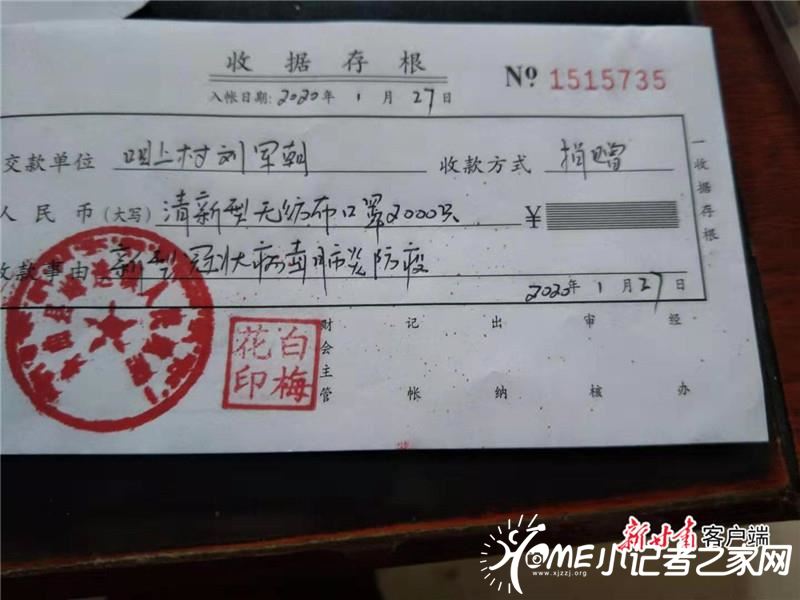 收据存根
№ 1515735
入帐日期：2020年 1 月 27 日
交款单位 咀上村刘军朝 收款方式 捐赠
人民币(大写) 清新型无纺布口罩2000只 ¥
收款事由 新型冠状病毒肺炎防疫
2020年 1 月 27 日
一收据存根
财会主管 记帐 出纳 审核 经办
白梅花印
新甘肃客户端
HOME小记者之家网
www.xjzzj.org